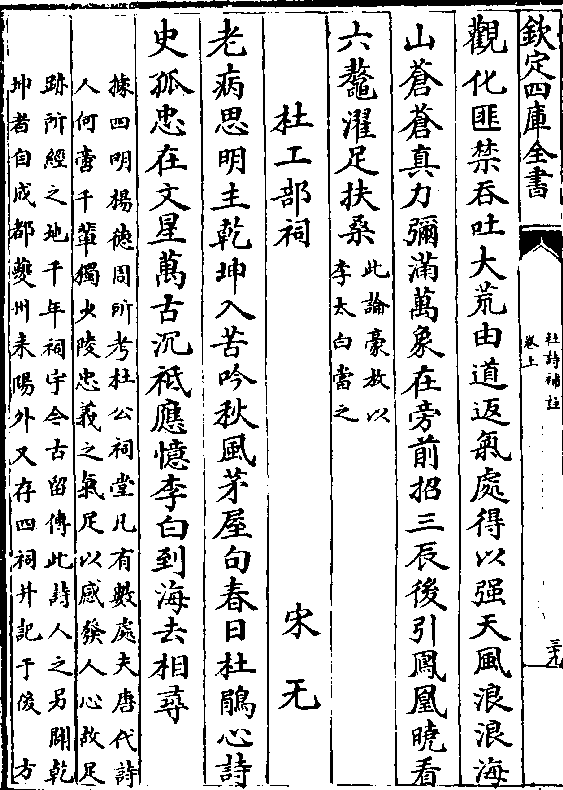 欽定四庫全書
杜詩補註
卷上
三十九
觀化匪禁吞吐大荒由道返氣處得以强天風浪浪海
山蒼蒼真力彌滿萬象在旁前招三辰後引鳳凰曉看
六鼇濯足扶桑
此論豪放以
李太白當之
杜工部祠 宋无
老病思明主乾坤入苦吟秋風茅屋句春日杜鵑心詩
史孤忠在文星萬古沉衹應憶李白到海去相尋
據四明楊徳周所考杜公祠堂凡有數處夫唐代詩
人何啻千輩獨少陵忠義之氣足以感發人心故足
跡所經之地千年祠宇今古留傳此詩人之另闢乾
坤者自成都夔州耒陽外又存四祠并記于後 方